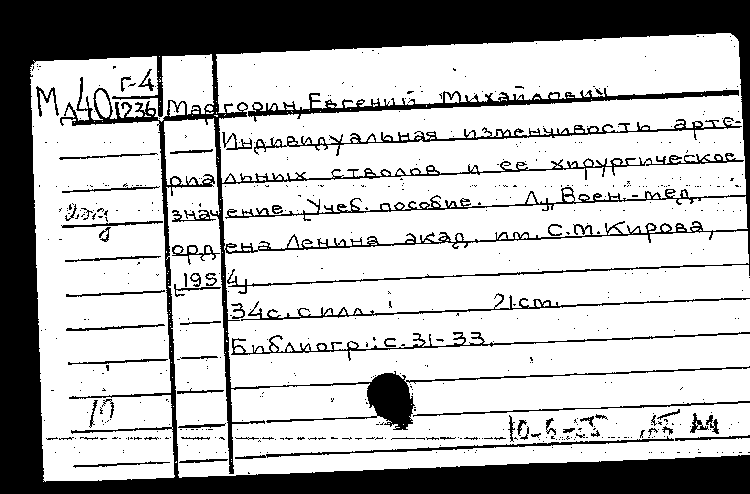 Г-4
Мд40 1236 Маргорин, Евгений Михайлович
Индивидуальная изменчивость арте-
риальных стволов и ее хирургическое
значение. [Учеб. пособие. Л., Воен.-мед.
ордена Ленина акад. им. С.М.Кирова,
1954].
34с. с илл. 21см.
Библиогр.: с. 31-33.
10